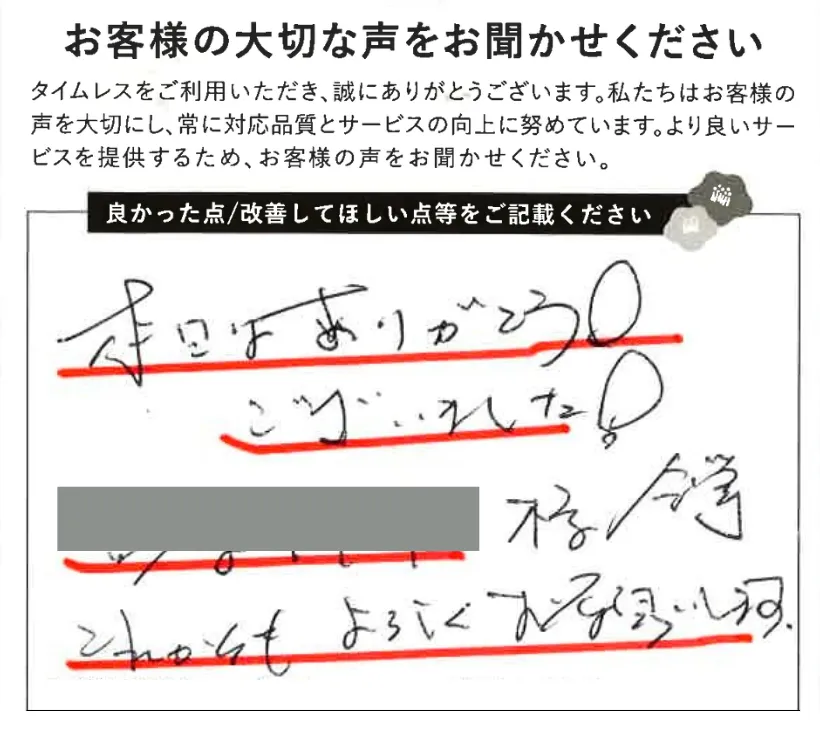 お客様の大切な声をお聞かせください
タイムレスをご利用いただき、誠にありがとうございます。私たちはお客様の
声を大切にし、常に対応品質とサービスの向上に努めています。より良いサー
ビスを提供するため、お客様の声をお聞かせください。
良かった点/改善してほしい点等をご記載ください
本日はありがとう
ございました!
様
これからもよろしくお願いします.